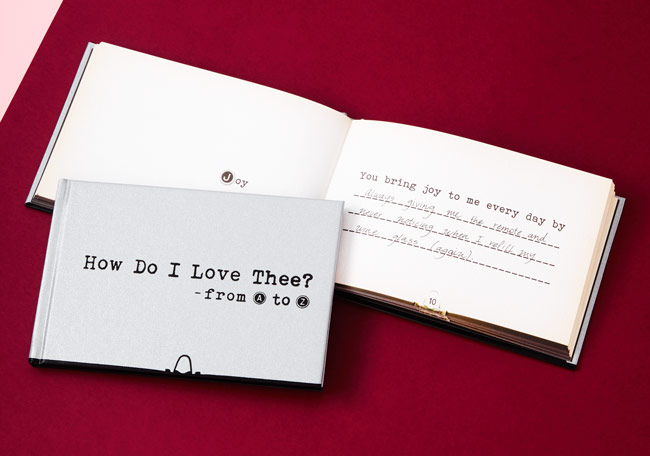 Joy
You bring joy to me every day by
Always giving me the remote and
never noticing when I refill my
wine glass (again).
10
How Do I Love Thee?
-from A to Z